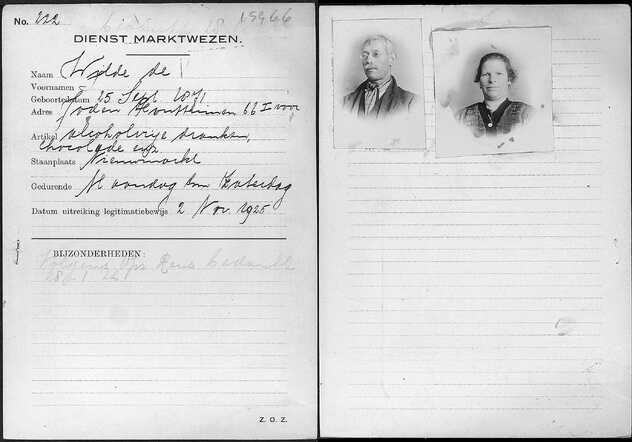 No. 222 15966
DIENST MARKTWEZEN.
Naam Wilde de
Voornamen
Geboortedatum 25 Sept 1871
Adres Joden Houttuinen 66 I voor
Artikel alcoholvrije dranken,
chocolade enz
Staanplaats Nieuwmarkt
Gedurende Maandag t/m Zaterdag
Datum uitreiking legitimatiebewijs 2 Nov. 1925
BIJZONDERHEDEN:
Volgens
Z. O. Z.